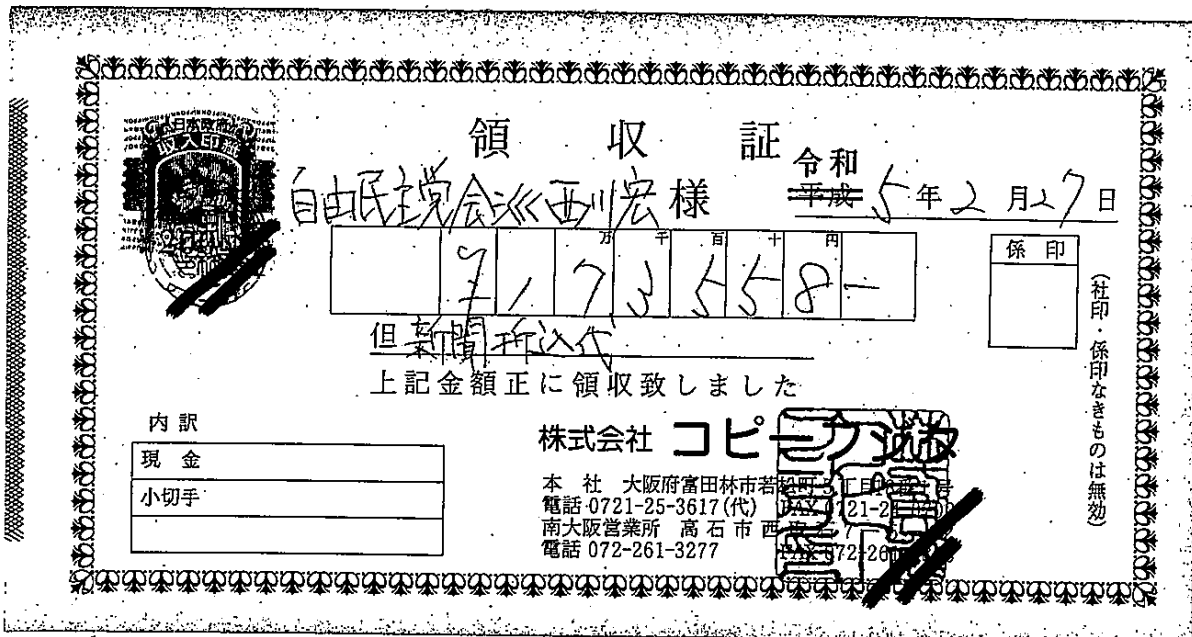 日本政府
収入印紙
領収証
自由民主党会派西川宏様
令和
平成 5年2月27日
万 千 百 十 円
¥173558-
係印
但 新聞折込代
上記金額正に領収致しました
(社印・係印なきものは無効)
内訳
現金
小切手
株式会社 コピー
本社 大阪府富田林市若松町
電話 0721-25-3617(代) FAX 0721-2
南大阪営業所 高石市西
電話 072-261-3277 FAX 072-26